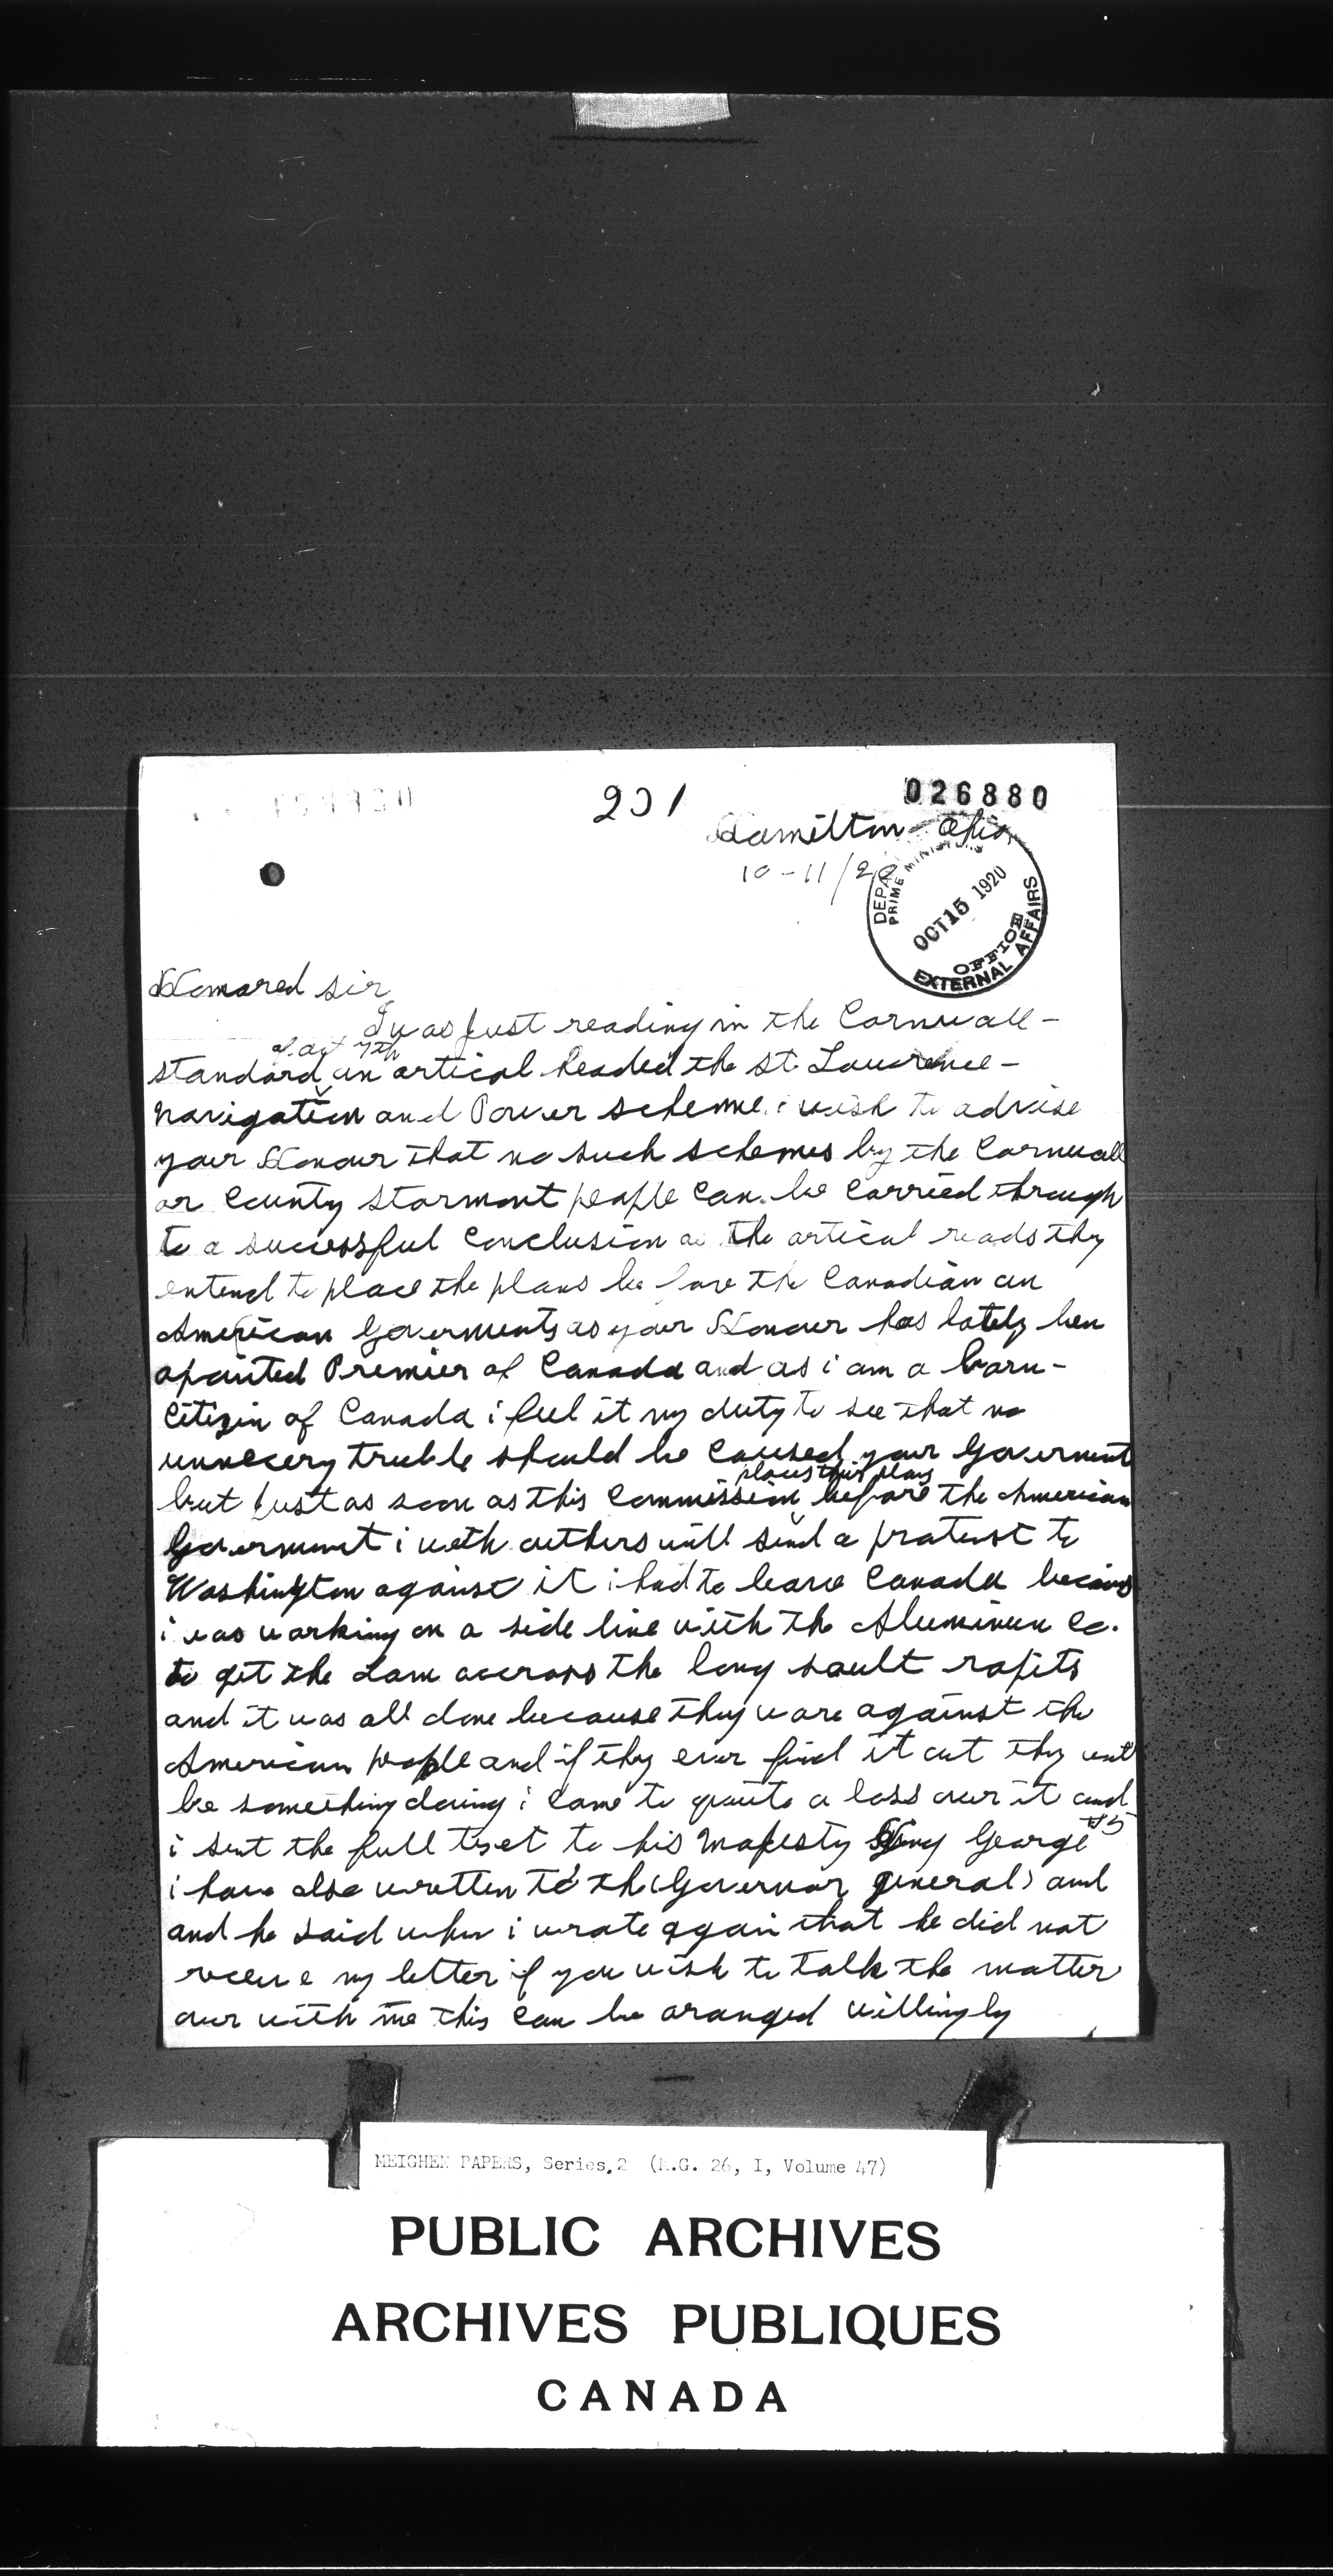 026880
201
Hamilton Ohio
10-11/20
DEPA
PRIME MINISTERS
OCT 15 1920
OFFICE
EXTERNAL AFFAIRS
Honared sir
I was just reading in the Cornwall-
of oct 7th
standard an artical headed the St. Lawrence-
Navigation and Power scheme. i wish to advise
your Honour that no such schemes by the Cornwall
or County Stormont people can be carried through
to a sucessful conclusion as the artical reads they
entend to place the plans before the Canadian an
American Goverments as your Honour has lately ben
apointed Premier of Canada and as i am a born-
Citizin of Canada i feel it my duty to see that no
unnecery truble should be caused your Goverment
places their plans
but just as soon as this Commission before the American
Goverment i with outhers will send a protest to
Washington against it i had to leave Canada becaus
i was working on a side line with the Aluminum Co.
to get the dam accross the long sault rapits
and it was all done because they ware against the
American people and if they ever find it out they will
be something doing i came to quite a loss over it and
i sent the full text to his Majesty King George #5
i have also written to the (Governor general) and
and he said when i wrote again that he did not
receive my letter if you wish to talk the matter
over with me this can be aranged willingly
MEIGHEN PAPERS, Series 2 (M.G. 26, I, Volume 47)
PUBLIC ARCHIVES
ARCHIVES PUBLIQUES
CANADA